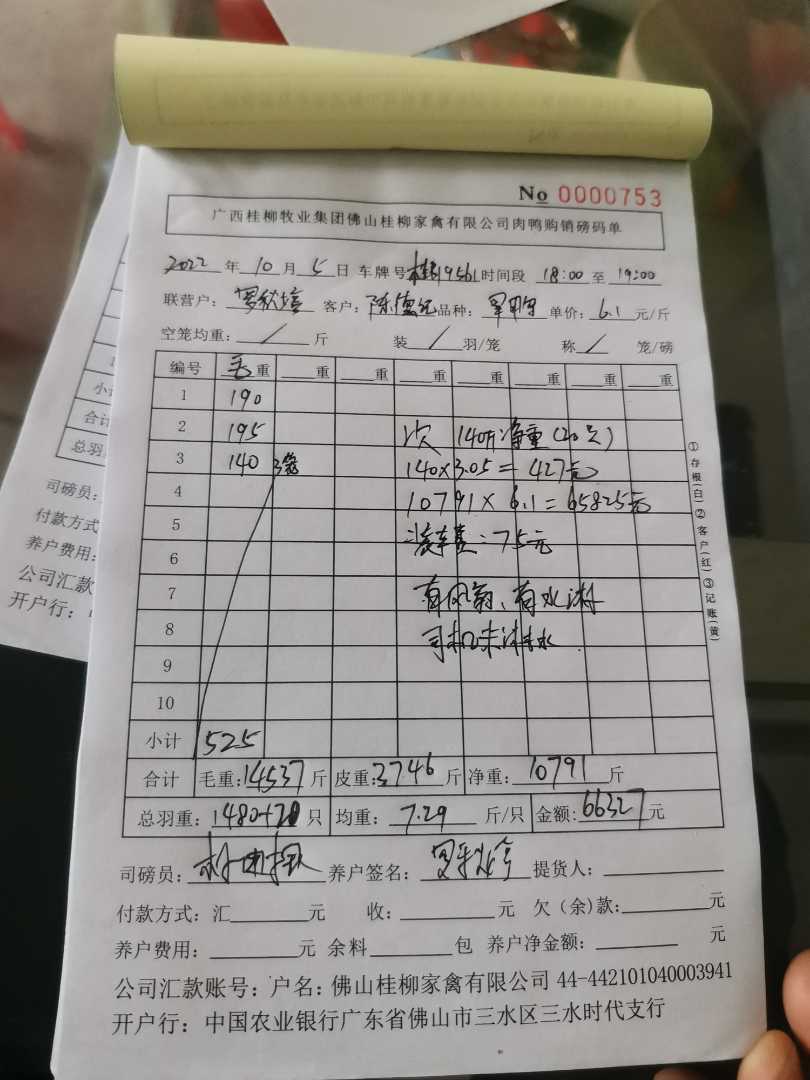 No 0000753
广西桂柳牧业集团佛山桂柳家禽有限公司肉鸭购销磅码单
2022 年 10 月 5 日 车牌号 19561 时间段 18:00 至 19:00
联营户: 罗 客户: 陈 品种: 单价: 6.1 元/斤
空笼均重: / 斤 装 / 羽/笼 称 / 笼/磅
编号 毛重 重 重 重 重 重 重 重
1 190
2 195 次 140斤净重(20只)
3 140 3笼 140×3.05=427元
4 10791×6.1=65825元
5 装车费:75元
6
7 有风扇、有水淋
8 司机未淋水
9
10
小计 525
合计 毛重:14537斤 皮重:3746斤 净重:10791斤
总羽重:1480+20只 均重:7.29斤/只 金额:66327元
司磅员: 养户签名: 罗 提货人:
付款方式:汇 元 收: 元 欠(余)款: 元
养户费用: 元 余料 包 养户净金额: 元
公司汇款账号:户名:佛山桂柳家禽有限公司 44-442101040003941
开户行:中国农业银行广东省佛山市三水区三水时代支行
①存根(白)②客户(红)③记账(黄)
小
合计
总羽
司磅员:
付款方式
养户费用:
公司汇款
开户行: